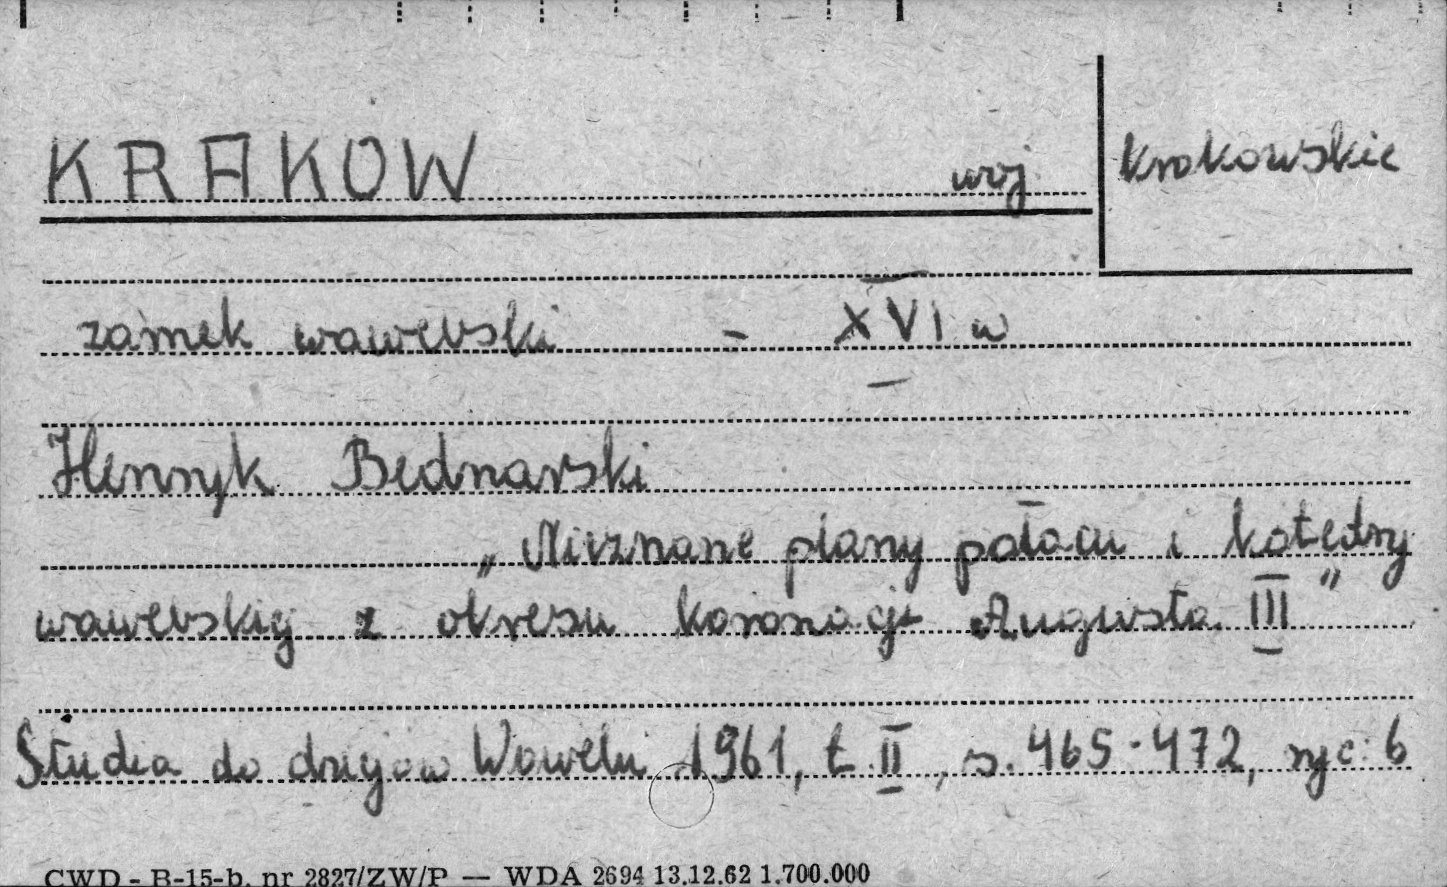 KRAKOW woj. krakowskie
zamek wawelski - XVI w
Henryk Bednarski
„Nieznane plany pałacu i katedry
wawelskiej z okresu koronacji Augusta III"
Studia do dziejów Wawelu 1961, t. II, s. 465-472, ryc. 6
CWD - B-15-b. nr 2827/ZW/P — WDA 2694 13.12.62 1.700.000